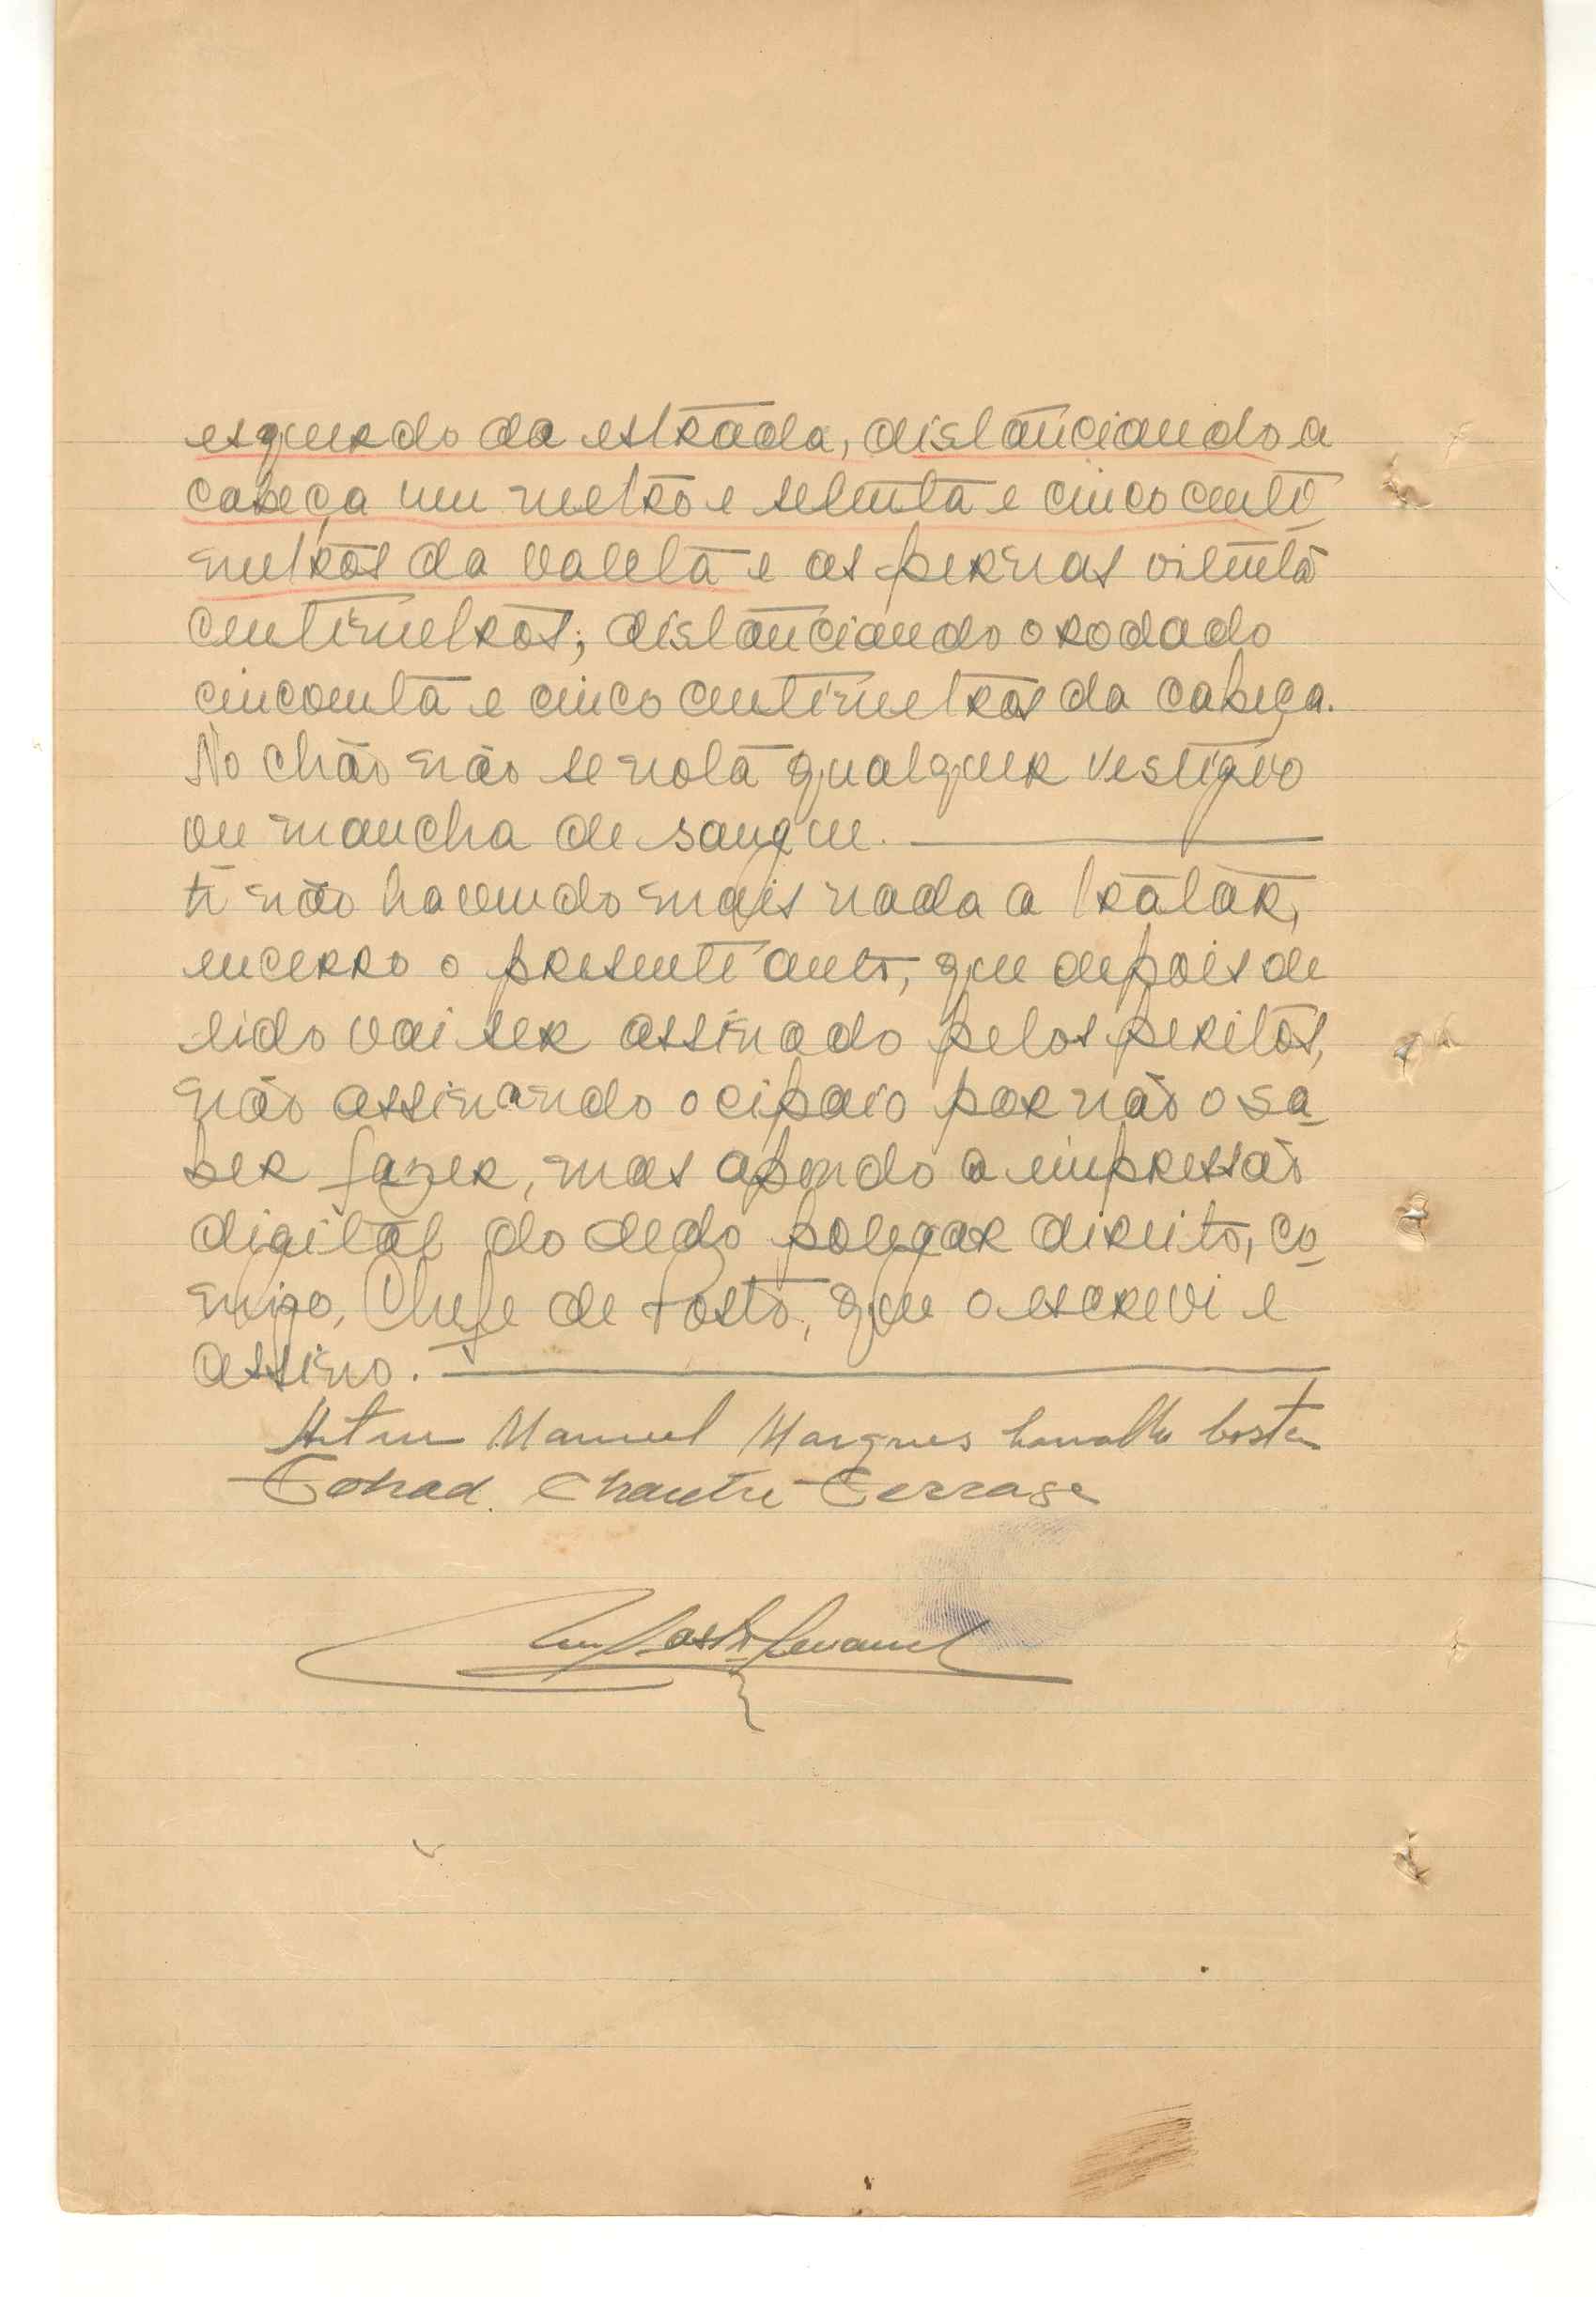 esquerdo da estrada, distânciando a
cabeça um metro e setenta e cinco centi
metros da valeta e as pernas oitenta
centimetros; distânciando o rodado
cinconta e cinco centimetros da cabeça.
No chão não se nota qualquer vestigio
ou mancha de sangue.
E não havendo mais nada a tratar,
encerro o presente auto, que depois de
lido vai ser assinado pelos peritos,
não assinando o cipaio por não o sa-
ber fazer, mas apondo a impressão
digital do dedo polegar direito, co-
migo, Chefe de Posto, que o escrevi e
assino.
Artur Manuel Marques Carvalho Costa
Chantre